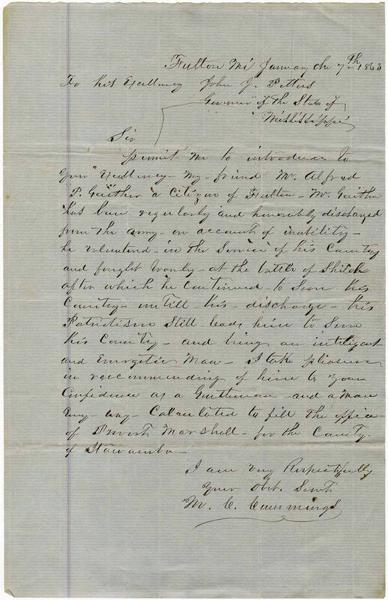 Fulton Mi January the 7th 1863
To his Excellency John J. Pettus
Governor of the State of
Mississippi
Sir
permit me to introduce to
your Excellency - my - friend Mr. Alfred
a Citizen of Fulton - Mr.
has been regularly and honorably discharged
from the army - on account of inability -
he volunteered - in the Service of his Country
and fought - at the battle of Shiloh
after which he continued - to Serve his
Country - untill his discharge - his
Patriotism Still leads him to Serve
his Country - and being an intelligent
and Energetic Man - I take pleasure
in reccommending of him to your
Confidence as a Gentleman - and a man
Calculated to fill the office
of Provost Marshall - for the County
of Itawamba -
I am very Respectfully
your Obt. Servt.
W. C. Cummings